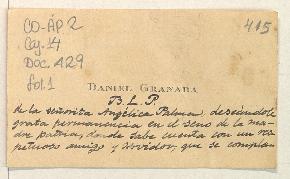 CO-ÁP 2
Caj. 14
Doc. 429
fol. 1
415
DANIEL GRANADA
B. L. P.
de la señorita Angélica Palma, deseándole
grata permanencia en el seno de la ma-
dre patria, donde sabe cuenta con un res-
petuoso amigo y servidor, que se complace